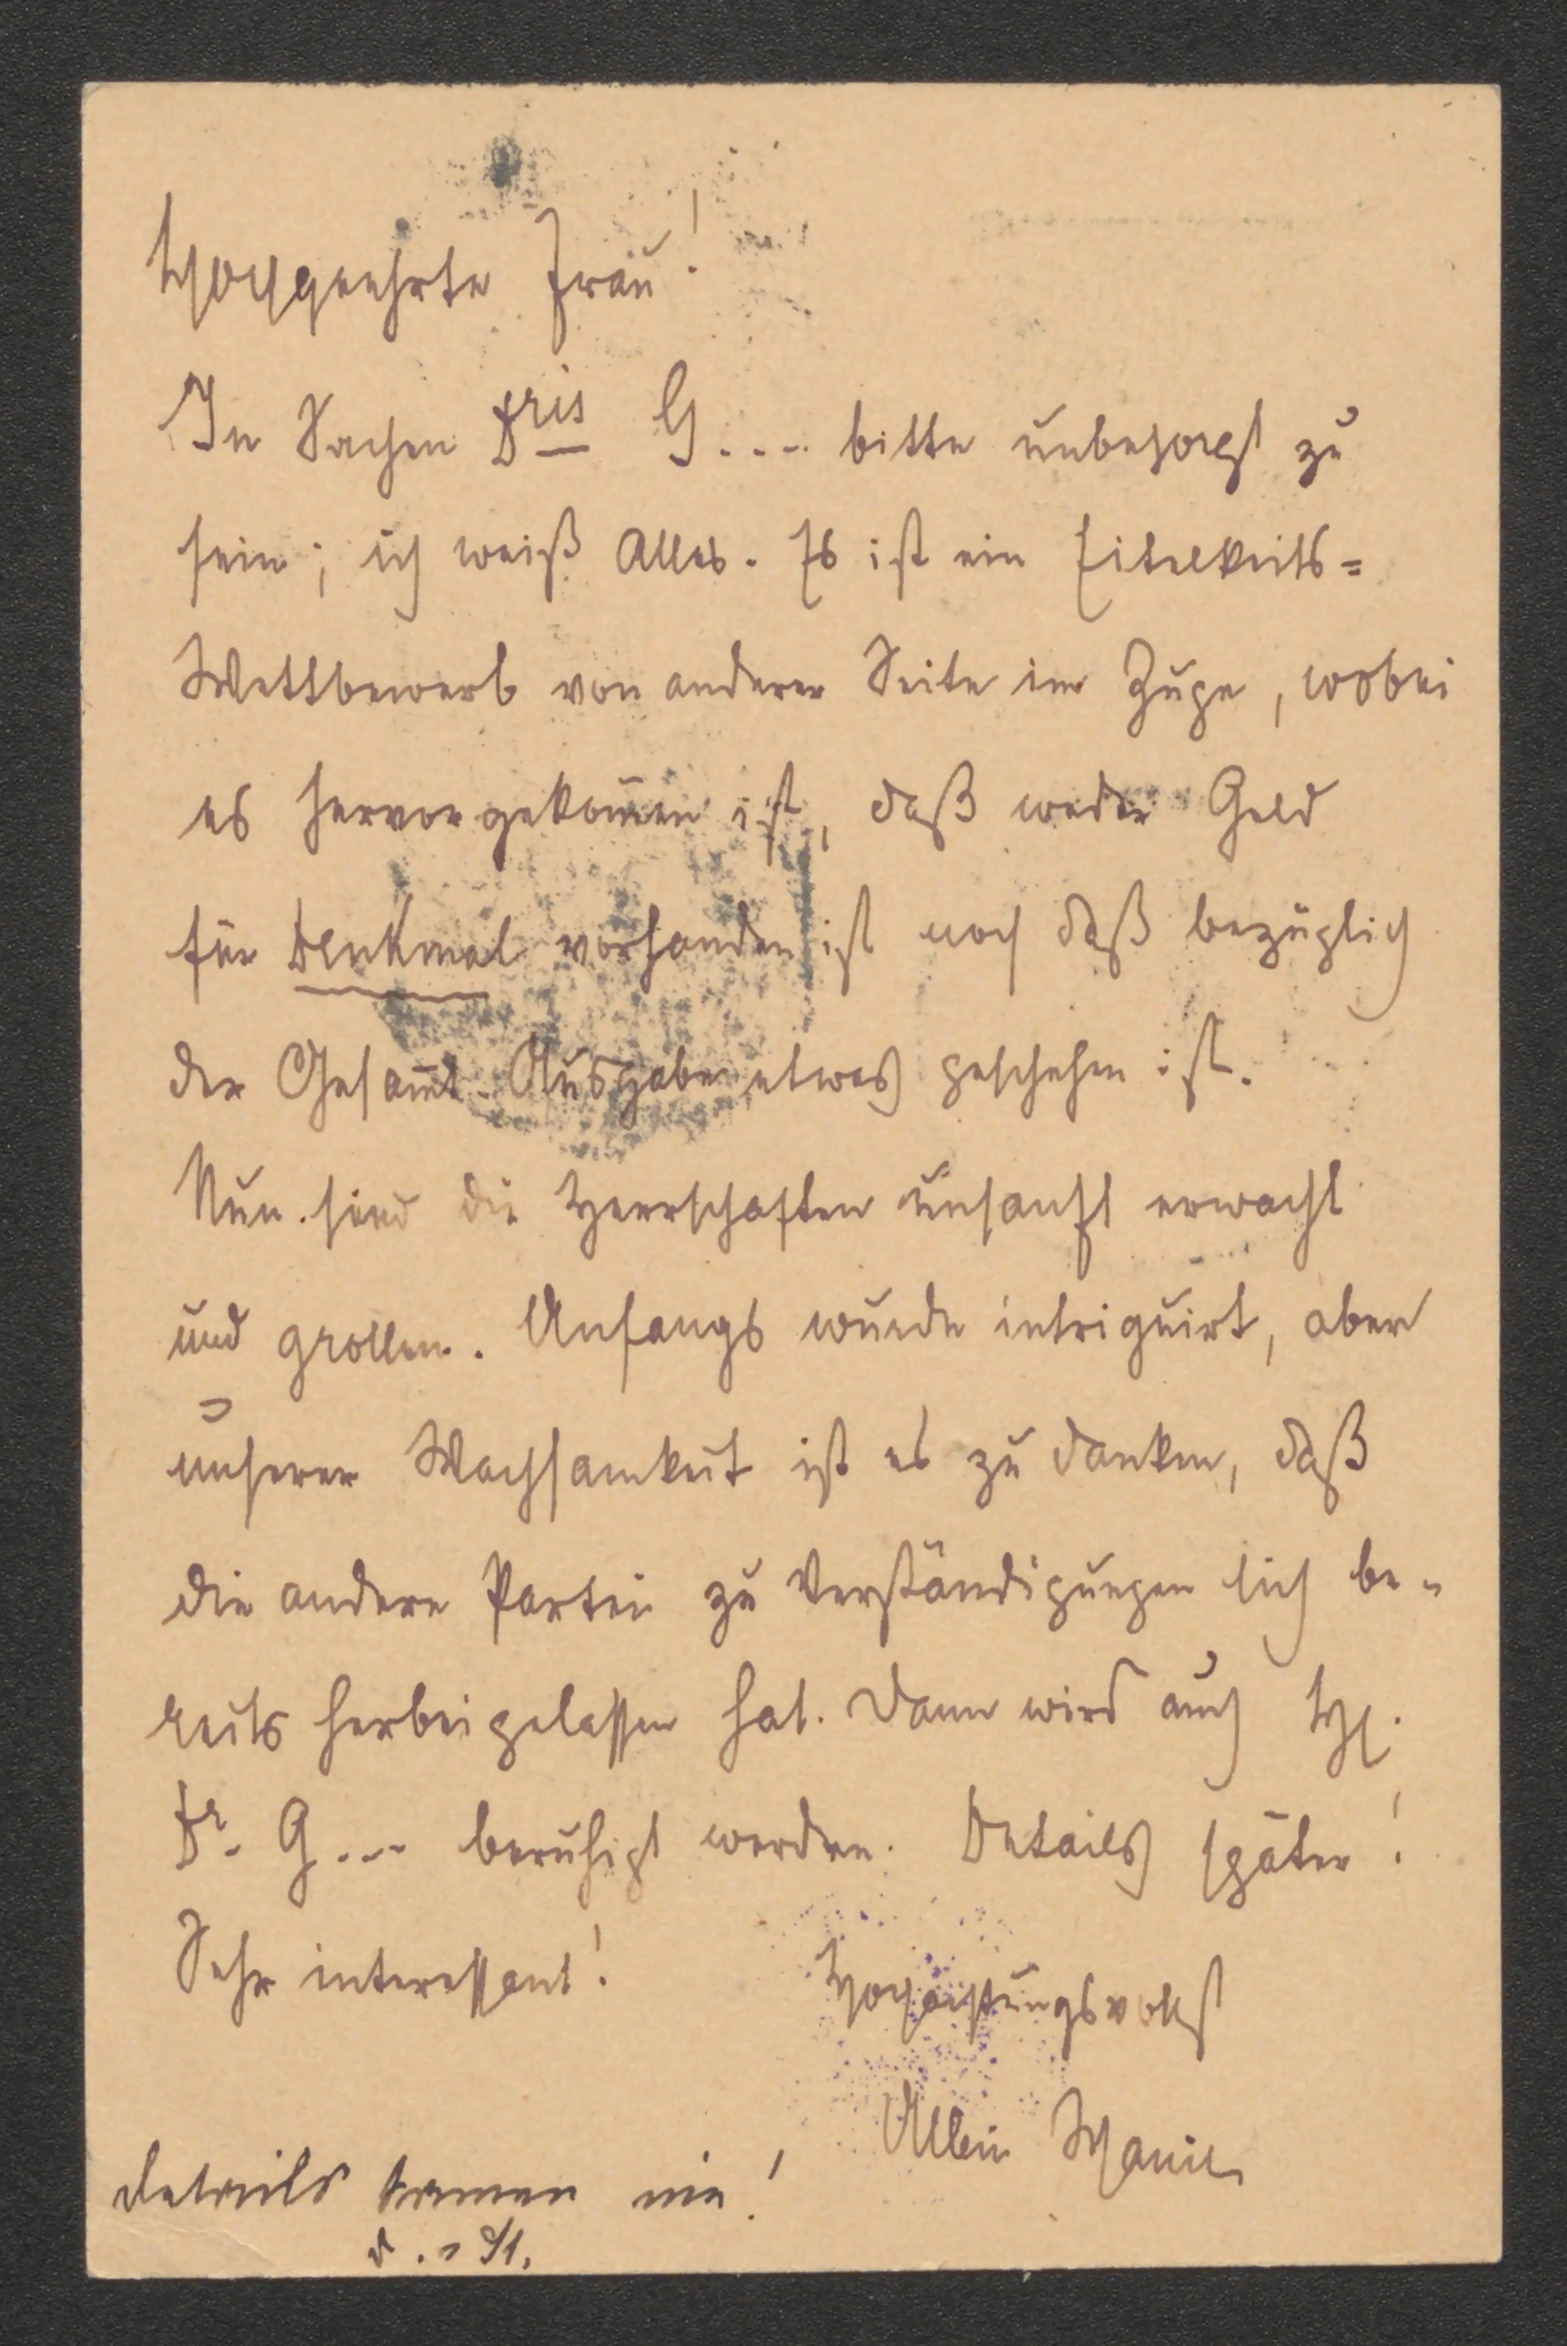 Hochgeehrte Frau!
In Sachen Dris G.... bitte unbesorgt zu
sein; ich weiß Alles. Es ist ein Eitelkeits=
Wettbewerb von anderer Seite im Zuge, wobei
es hervorgekom̄en ist, daß weder Geld
für Denkmal vorhanden ist noch daß bezüglich
der Gesam̄t-Ausgabe etwas geschehen ist.
Nun sind die Herrschaften unsanft erwacht
und grollen. Anfangs wurde intriguirt, aber
unserer Wachsamkeit ist es zu danken, daß
die andere Partei zu Verständigungen sich be-
reits herbeigelassen hat. Dann wird auch H.
Dr. G... beruhigt werden. Details später!
Sehr interessant! Hochachtungsvollst
Details kamen nie!